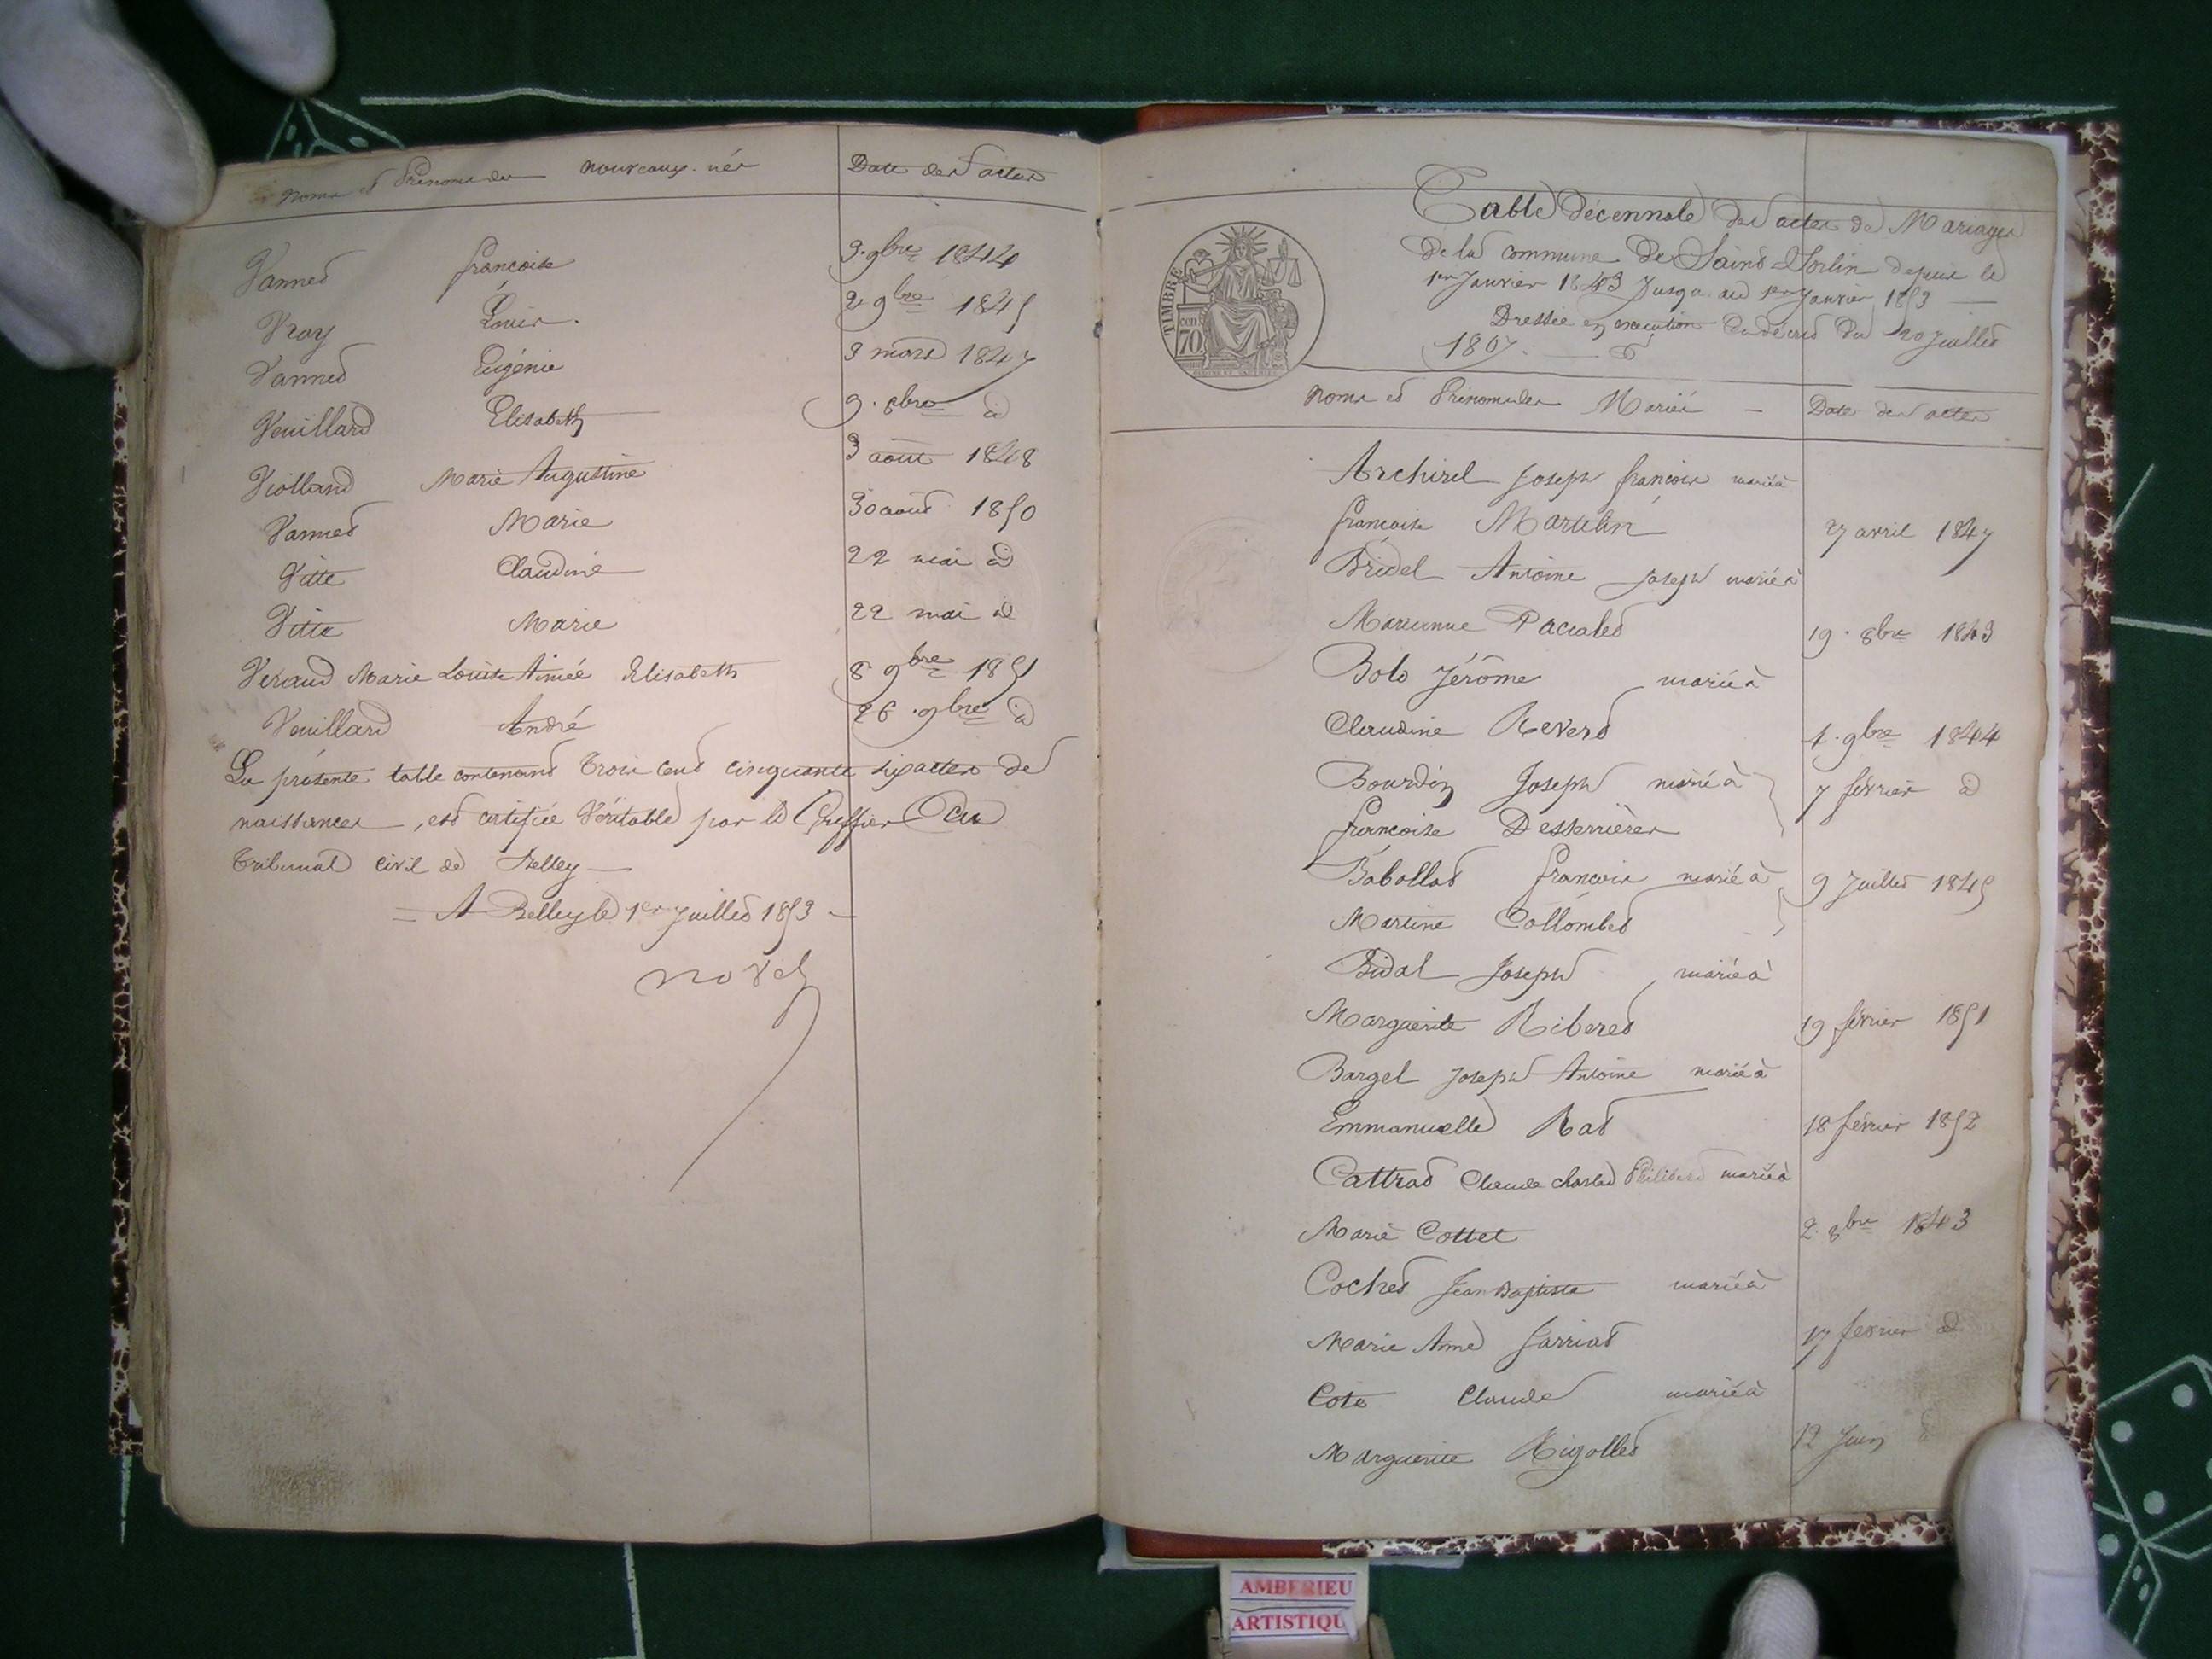 Noms et Prénoms des nouveaux-nés Date des actes
Vannet françoise 3 9bre 1844
Vray Louis. 2 9bre 1845
Vannet Eugénie 3 mars 1847
Veuillard Elisabeth 9. 8bre id
Violland Marie Augustine 3 août 1848
Vannet Marie 30 août 1850
Vitte Claudine 22 mai id
Vitte Marie 22 mai id
Veraud Marie Louise Aimée Elisabeth 8 9bre 1851
Veuillard André 26. 9bre id
La présente table contenant trois cent cinquante six actes de
naissances, est certifiée Véritable par le Greffier du
Tribunal civil de Belley —
= A Belley le 1er Juillet 1853 —
TIMBRE
cen.
70.
Table décennale des actes de Mariages
de la commune de Saint-Sorlin depuis le
1er Janvier 1843 Jusqu'au 1er Janvier 1853 —
Dressée en exécution du décret du 20 Juillet
1807. —
Noms et Prénoms des Mariés — Date des actes
Archirel Joseph françois marié à
françoise Martelin 27 avril 1847
Bridel Antoine Joseph marié à
Marianne Pacalet 19. 8bre 1843
Bolo Jérôme marié à
Claudine Revert 4. 9bre 1844
Bourdin Joseph marié à 7 février id
françoise Desserrières
Babollat françois marié à 9 Juillet 1845
Martine Collombet
Bidal Joseph marié à
Marguerite Riberet 19 février 1851
Bargel Joseph Antoine marié à
Emmanuelle Rat 18 février 1852
Cattrat Claude charles Philibert marié à
Marie Cottet 2. 8bre 1843
Cochet Jean Baptiste marié à
Marie Anne Jarriat 17 février id
Cote Claude marié à
Marguerite Rigollet 12 Juin
AMBERIEU
ARTISTIQU